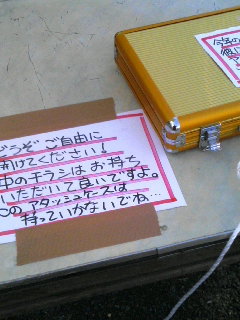 どうぞご自由に
開けてください!
中のチラシはお持ち
いただいて良いですよ。
このアタッシュケースは
持っていかないでね…